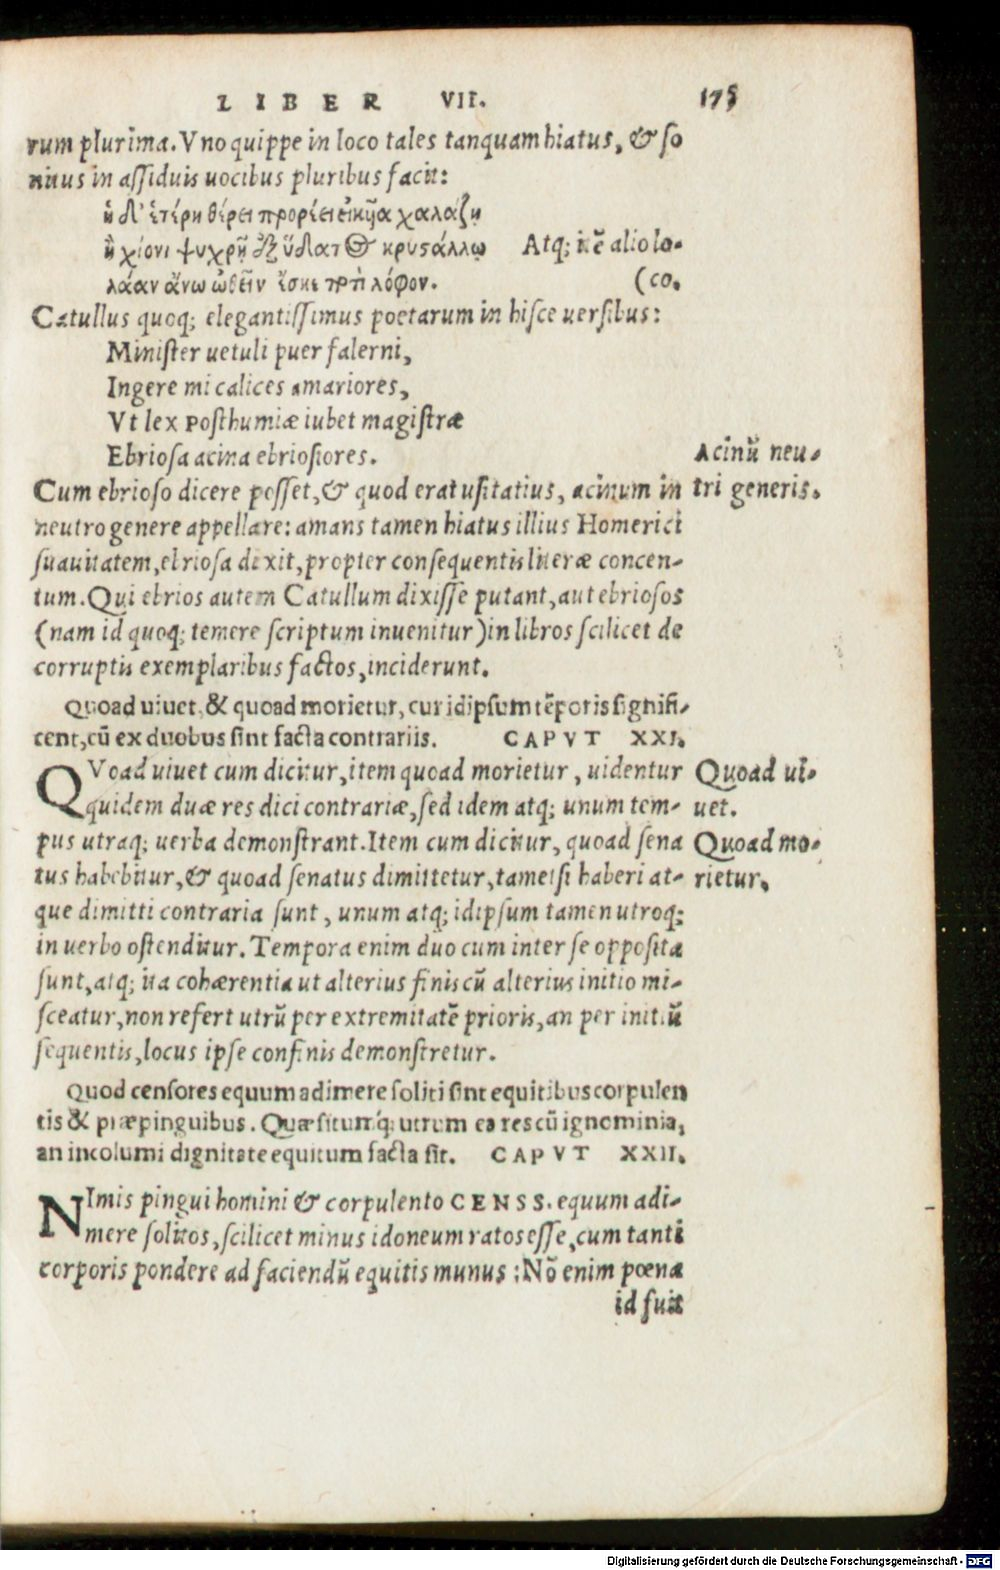 LIBER VII. 175
rum plurima. Vno quippe in loco tales tanquam hiatus, & so
nitus in assiduis uocibus pluribus facit:
ἡ δ' ἑτέρη θέρεϊ προρέει εἰκῆα χαλάζῃ
ἢ χιόνι ψυχρῇ ἢ ἐξ ὕδατος κρυστάλλῳ Atq; itē alio lo-
λάαν ἄνω ὤθεσκεν ποτὶ λόφον. (co.
Catullus quoq; elegantissimus poetarum in hisce uersibus:
Minister uetuli puer falerni,
Ingere mi calices amariores,
Vt lex Posthumiæ iubet magistræ
Ebriosa acina ebriosiores.
Acinū neu-
Cum ebrioso dicere posset, & quod erat usitatius, acinum in
tri generis.
neutro genere appellare: amans tamen hiatus illius Homerici
suauitatem, ebriosa dixit, propter consequentis literæ concen-
tum. Qui ebrios autem Catullum dixisse putant, aut ebriosos
(nam id quoq; temere scriptum inuenitur) in libros scilicet de
corruptis exemplaribus factos, inciderunt.
Quoad uiuet, & quoad morietur, cur idipsum tēporis signifi-
cent, cū ex duobus sint facta contrariis. CAPVT XXI.
QVoad uiuet cum dicitur, item quoad morietur, uidentur
Quoad ui-
quidem duæ res dici contrariæ, sed idem atq; unum tem-
uet.
pus utraq; uerba demonstrant. Item cum dicitur, quoad sena
Quoad mo-
tus habebitur, & quoad senatus dimittetur, tametsi haberi at-
rietur.
que dimitti contraria sunt, unum atq; idipsum tamen utroq;
in uerbo ostenditur. Tempora enim duo cum inter se opposita
sunt, atq; ita cohærentia ut alterius finis cū alterius initio mi-
sceatur, non refert utrū per extremitatē prioris, an per initiū
sequentis, locus ipse confinis demonstretur.
Quod censores equum adimere soliti sint equitibus corpulen
tis & præpinguibus. Quæsitumq; utrum ea res cū ignominia,
an incolumi dignitate equitum facta sit. CAPVT XXII.
NImis pingui homini & corpulento CENSS. equum adi-
mere solitos, scilicet minus idoneum ratos esse, cum tanti
corporis pondere ad faciendū equitis munus: Nō enim pœna
id fuit
Digitalisierung gefördert durch die Deutsche Forschungsgemeinschaft - DFG